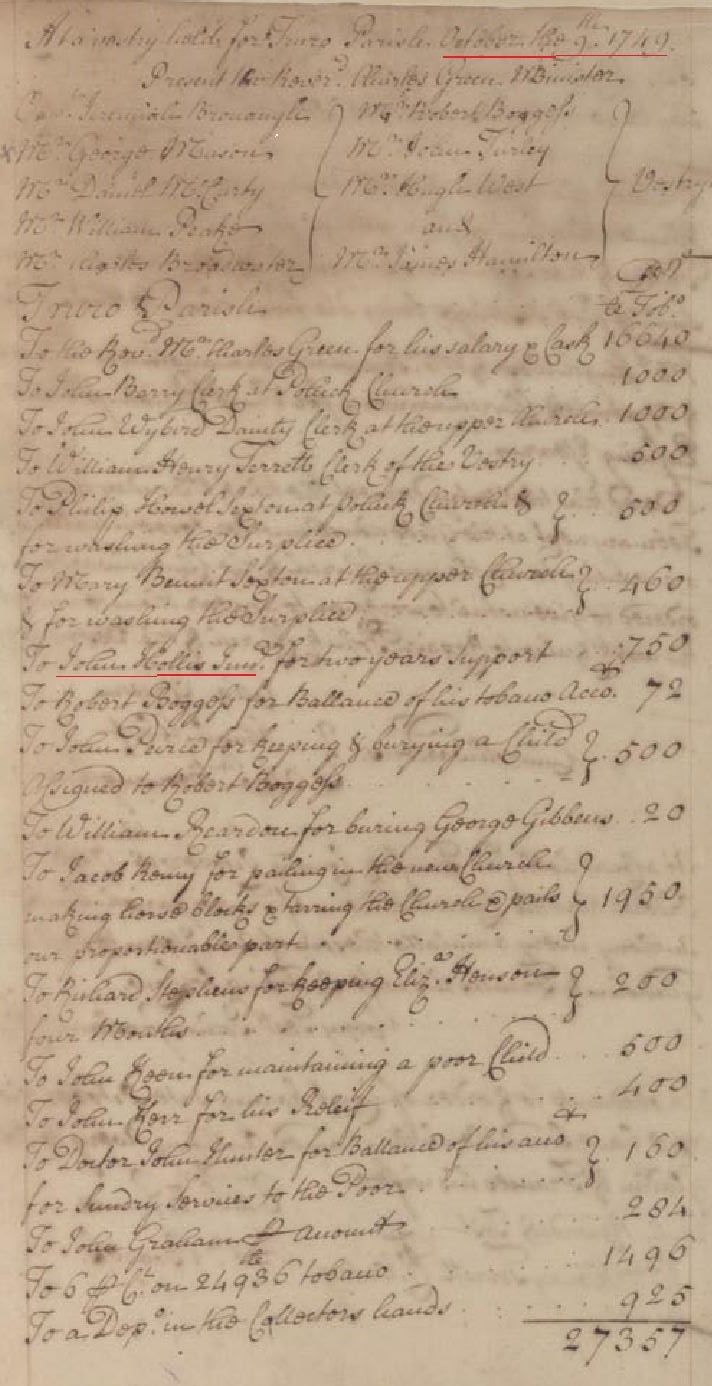 At a vestry held for Truro Parish October the 9th. 1749.
Present the Reverd. Charles Green Minister
Capt. Jeremiah Bronaugh Mr. Robert Boggess
Mr. George Mason Mr. John Turley
Mr. Daniel McCarty Mr. Hugh West Vestry
Mr. William Peake and
Mr. Charles Broadwater Mr. James Hamilton
Truro Parish Dr.
lb Tobo.
To the Revd. Mr. Charles Green for his salary & Cask 16640
To John Barry Clerk at Pohick Church 1000
To John Wybird Dainty Clerk at the upper Church 1000
To William Henry Terrett Clerk of the Vestry 500
To Philip Howel Sexton at pohick Church & 500
for washing the Surplice
To Mary Bennit Sexton at the upper Church 460
& for washing the Surplice
To John Hollis Junr. for two years Support 750
To Robert Boggess for Ballance of his tobacco Acct. 72
To John Peirce for keeping & burying a Child 500
Assigned to Robert Boggess
To William Reardon for buring George Gibbens 20
To Jacob Remy for pailing in the new Church
making horse blocks & tarring the Church & pails 1950
our proportionable part
To Richard Stephens for keeping Eliza. Henson 200
four Months
To John Keen for maintaining a poor Child 500
To John Kerr for his Releif 400
To Doctor John Hunter for Ballance of his acct 160
for Sundry Services to the Poor
To John Graham ⅌ amount 284
To 6 ⅌ Ct. on 24936 lb tobacco 1496
To a Depo. in the Collectors hands 925
27357